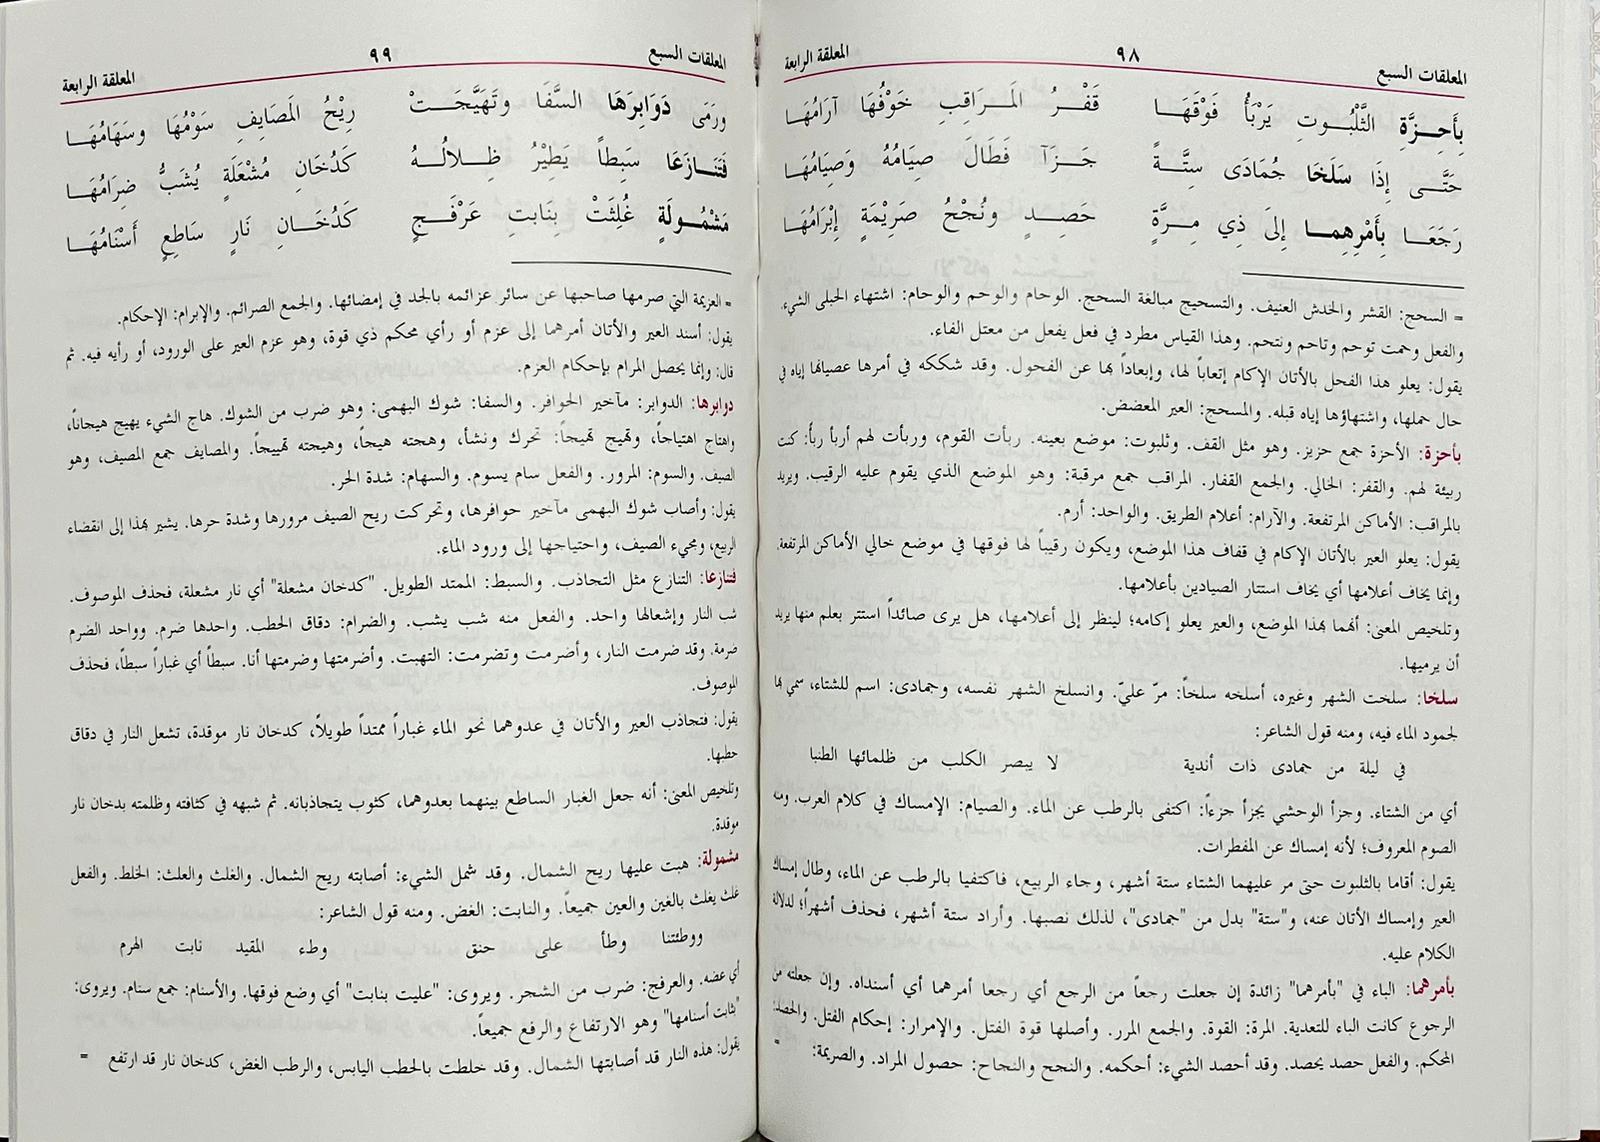 المعلقات السبع ٩٨ المعلقة الرابعة
بِأَحِزَّةِ الثَّلْبُوتِ يَرْبَأُ فَوْقَهَا قَفْرُ المَرَاقِبِ خَوْفُهَا آرَامُهَا
حَتَّى إِذَا سَلَخَا جُمَادَى سِتَّةً جَزَآ فَطَالَ صِيَامُهُ وَصِيَامُهَا
رَجَعَا بِأَمْرِهِمَا إِلَى ذِي مِرَّةٍ حَصِدٍ ونُجْحُ صَرِيْمَةٍ إِبْرَامُهَا
= السحج: القشر والخدش العنيف. والتسحيج مبالغة السحج. الوحام والوحم والوحام: اشتهاء الحبلى الشيء.
والفعل وحمت توحم وتاحم ونتحم. وهذا القياس مطرد في فعل يفعل من معتل الفاء.
يقول: يعلو هذا الفحل بالأتان الإكام إتعاباً لها، وإبعاداً بها عن الفحول. وقد شككه في أمرها عصيانها إياه في
حال حملها، واشتهاؤها إياه قبله. والمسحج: العير المعضض.
بأحزة: الأحزة جمع حزيز. وهو مثل القف. وثلبوت: موضع بعينه. ربأت القوم، وربأت لهم أربأ ربأً: كنت
ربيئة لهم. والقفر: الخالي. والجمع القفار. المراقب جمع مرقبة: وهو الموضع الذي يقوم عليه الرقيب. ويريد
بالمراقب: الأماكن المرتفعة. والآرام: أعلام الطريق. والواحد: أرم.
يقول: يعلو العير بالأتان الإكام في قفاف هذا الموضع، ويكون رقيباً لها فوقها في موضع خالي الأماكن المرتفعة.
وإنما يخاف أعلامها أي يخاف استتار الصيادين بأعلامها.
وتلخيص المعنى: أنهما بهذا الموضع، والعير يعلو إكامه؛ لينظر إلى أعلامها، هل يرى صائداً استتر بعلم منها يريد
أن يرميها.
سلخا: سلخت الشهر وغيره، أسلخه سلخاً: مرّ عليّ. وانسلخ الشهر نفسه، وجمادى: اسم للشتاء، سمي بها
لجمود الماء فيه، ومنه قول الشاعر:
في ليلة من جمادى ذات أندية لا يبصر الكلب من ظلمائها الطنبا
أي من الشتاء. وجزأ الوحشي يجزأ جزءاً: اكتفى بالرطب عن الماء. والصيام: الإمساك في كلام العرب. ومنه
الصوم المعروف؛ لأنه إمساك عن المفطرات.
يقول: أقاما بالثلبوت حتى مر عليهما الشتاء ستة أشهر، وجاء الربيع، فاكتفيا بالرطب عن الماء، وطال إمساك
العير وإمساك الأتان عنه، و"ستة" بدل من "جمادى"، لذلك نصبها. وأراد ستة أشهر، فحذف أشهراً؛ لدلالة
الكلام عليه.
بأمرهما: الباء في "بأمرهما" زائدة إن جعلت رجعاً من الرجع أي رجعا أمرهما أي أسنداه. وإن جعلته من
الرجوع كانت الباء للتعدية. المرة: القوة. والجمع المرر. وأصلها قوة الفتل. والإمرار: إحكام الفتل. والحصد:
المحكم. والفعل حصد يحصد. وقد أحصد الشيء: أحكمه. والنجح والنجاح: حصول المراد. والصريمة: =
المعلقات السبع ٩٩ المعلقة الرابعة
ورَمَى دَوَابِرَهَا السَّفَا وتَهَيَّجَتْ رِيْحُ المَصَايِفِ سَوْمُهَا وسَهَامُهَا
فَتَنَازَعَا سَبِطاً يَطِيْرُ ظِلالُهُ كَدُخَانِ مُشْعَلَةٍ يُشَبُّ ضِرَامُهَا
مَشْمُولَةٍ غُلِثَتْ بِنَابتِ عَرْفَجٍ كَدُخَانِ نَارٍ سَاطِعٍ أَسْنَامُهَا
= العزيمة التي صرمها صاحبها عن سائر عزائمه بالجد في إمضائها. والجمع الصرائم. والإبرام: الإحكام.
يقول: أسند العير والأتان أمرهما إلى عزم أو رأي محكم ذي قوة، وهو عزم العير على الورود، أو رأيه فيه. ثم
قال: وإنما يحصل المرام بإحكام العزم.
دوابرها: الدوابر: مآخير الحوافر. والسفا: شوك البهمى: وهو ضرب من الشوك. هاج الشيء يهيج هيجاناً،
واهتاج اهتياجاً، وتهيج تهيجاً: تحرك ونشأ، وهجته هيجاً، وهيجته تهييجاً. والمصايف جمع المصيف، وهو
الصيف. والسوم: المرور. والفعل سام يسوم. والسهام: شدة الحر.
يقول: وأصاب شوك البهمى مآخير حوافرها، وتحركت ريح الصيف مرورها وشدة حرها. يشير بهذا إلى انقضاء
الربيع، ومجيء الصيف، واحتياجها إلى ورود الماء.
فتنازعا: التنازع مثل التجاذب. والسبط: الممتد الطويل. "كدخان مشعلة" أي نار مشعلة، فحذف الموصوف.
شب النار وإشعالها واحد. والفعل منه شب يشب. والضرام: دقاق الحطب. واحدها ضرم. وواحد الضرم
ضرمة. وقد ضرمت النار، وأضرمت وتضرمت: التهبت. وأضرمتها وضرمتها أنا. سبطاً أي غباراً سبطاً، فحذف
الموصوف.
يقول: فتجاذب العير والأتان في عدوهما نحو الماء غباراً ممتداً طويلاً، كدخان نار موقدة، تشعل النار في دقاق
حطبها.
وتلخيص المعنى: أنه جعل الغبار الساطع بينهما بعدوهما، كثوب يتجاذبانه. ثم شبهه في كثافته وظلمته بدخان نار
موقدة.
مشمولة: هبت عليها ريح الشمال. وقد شمل الشيء: أصابته ريح الشمال. والغلث والعلث: الخلط. والفعل
غلث يغلث بالغين والعين جميعاً. والنابت: الغض. ومنه قول الشاعر:
ووطئتنا وطأ على حنق وطء المقيد نابت الهرم
أي غضه. والعرفج: ضرب من الشجر. ويروى: "عليت بنابت" أي وضع فوقها. والأسنام: جمع سنام. ويروى:
"بثابت أسنامها" وهو الارتفاع والرفع جميعاً.
يقول: هذه النار قد أصابتها الشمال. وقد خلطت بالحطب اليابس، والرطب الغض، كدخان نار قد ارتفع =